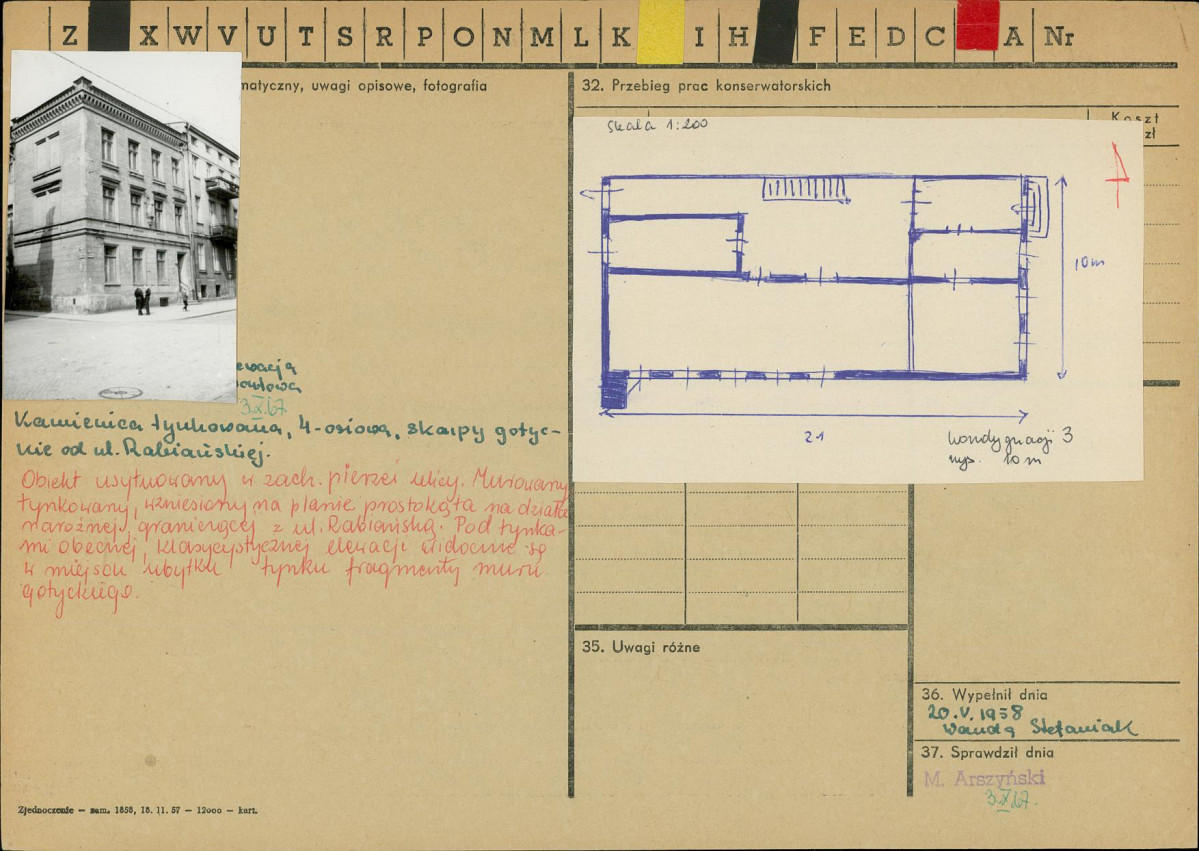 Z X W V U T S R P O N M L K I H F E D C A Nr
matyczny, uwagi opisowe, fotografia
ewacja
3.X.67
Kamienica tynkowana, 4-osiowa, skarpy gotyc-
kie od ul. Rabiańskiej.
Obiekt usytuowany w zach. pierzei ulicy. Murowany
tynkowany, wzniesiony na planie prostokąta na działce
narożnej, graniczącej z ul. Rabiańską. Pod tynka-
mi obecnej, klasycystycznej elewacji widoczne są
w miejscu ubytku tynku fragmenty muru
gotyckiego.
Zjednoczenie — zam. 1858, 18. 11. 57 — 12000 — kart.
32. Przebieg prac konserwatorskich
Koszt
zł
Skala 1:200
10m
21
kondygnacji 3
wys. 10 m
35. Uwagi różne
36. Wypełnił dnia
20.V.1958
Wanda Stefaniak
37. Sprawdził dnia
M. Arszyński
3.X.67.